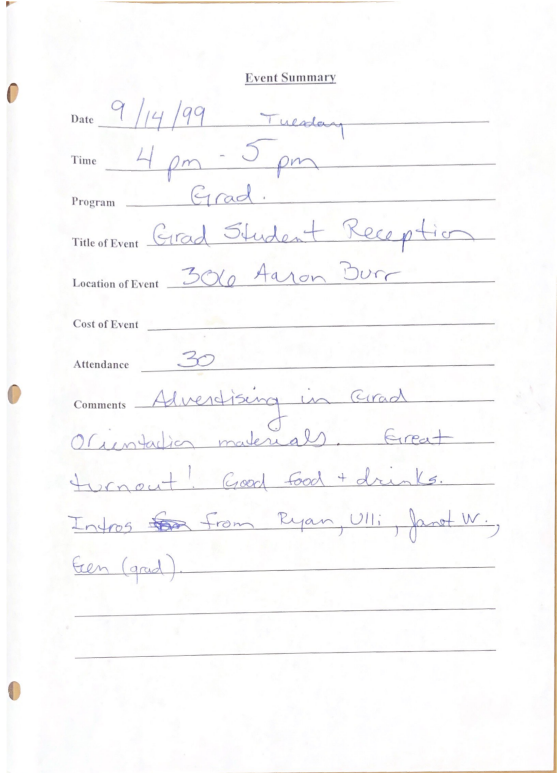 Event Summary
Date 9/14/99 Tuesday
Time 4 pm - 5 pm
Program Grad.
Title of Event Grad Student Reception
Location of Event 306 Aaron Burr
Cost of Event
Attendance 30
Comments Advertising in Grad
Orientation materials. Great
turnout! Good food + drinks.
Intros from Ryan, Ulli, Janet W.,
Gen (grad).